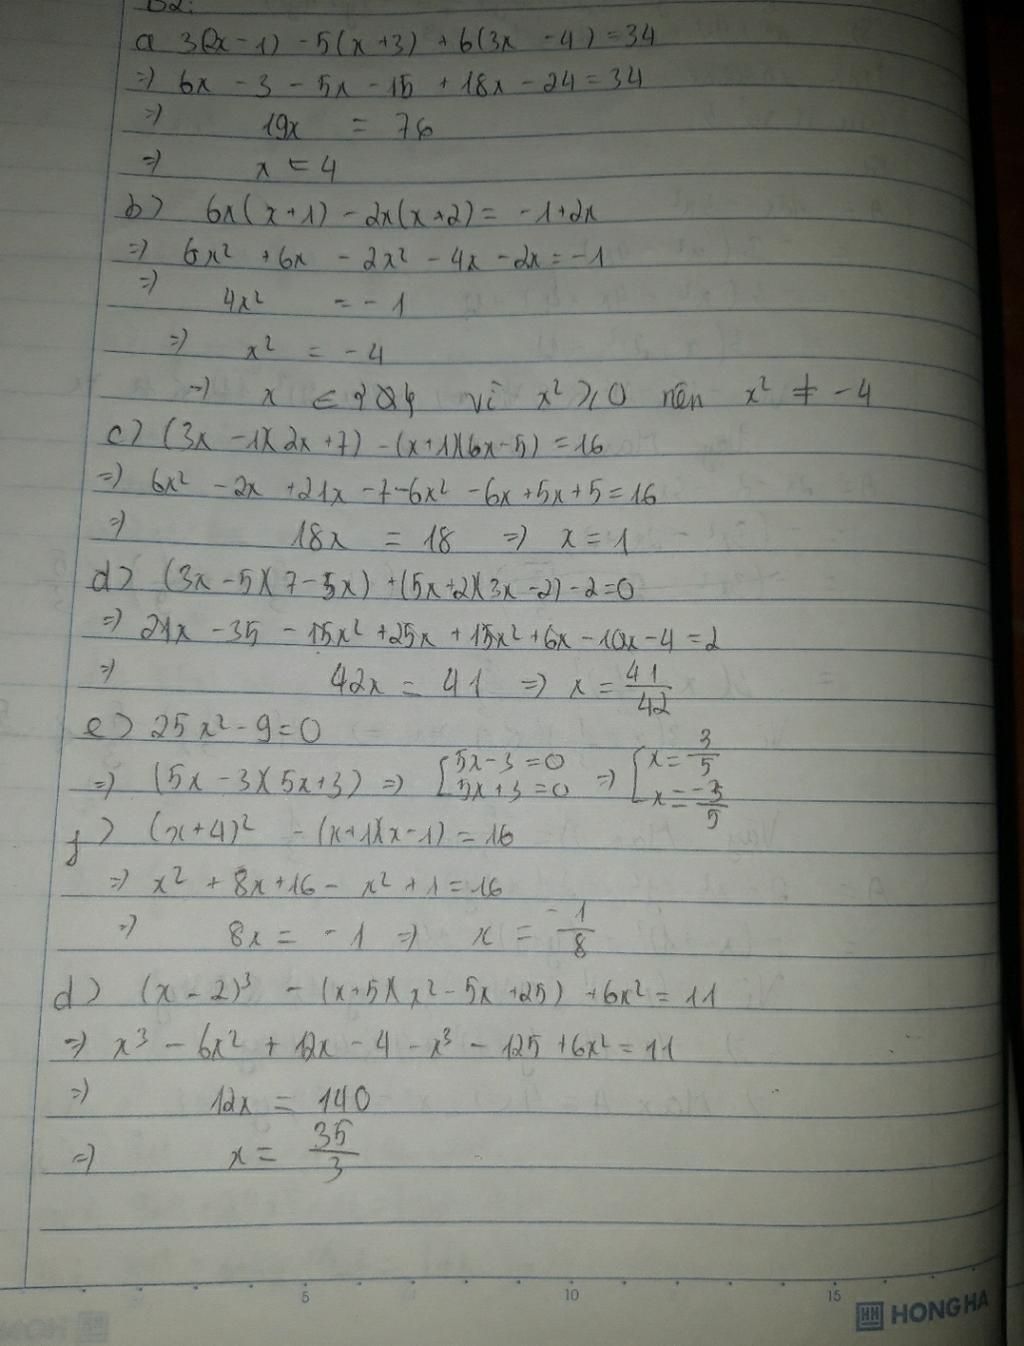 B2:
a 3(2x - 1) - 5(x + 3) + 6(3x - 4) = 34
=> 6x - 3 - 5x - 15 + 18x - 24 = 34
=> 19x = 76
=> x = 4
b> 6x(x+1) - 2x(x+2) = -1+2x
=> 6x² + 6x - 2x² - 4x - 2x = -1
=> 4x² = -1
=> x² = -4
=> x ∈ {∅} vì x² ≥ 0 nên x² ≠ -4
c> (3x - 1)(2x + 7) - (x+1)(6x-5) = 16
=> 6x² - 2x + 21x - 7 - 6x² - 6x + 5x + 5 = 16
=> 18x = 18 => x = 1
d> (3x - 5)(7 - 5x) + (5x+2)(3x - 2) - 2 = 0
=> 21x - 35 - 15x² + 25x + 15x² + 6x - 10x - 4 = 2
=> 42x = 41 => x = 41/42
e> 25x² - 9 = 0
=> (5x - 3)(5x+3) => [5x - 3 = 0 5x + 3 = 0 => [x = 3/5 x = -3/5
f> (x+4)² - (x+1)(x-1) = 16
=> x² + 8x + 16 - x² + 1 = 16
=> 8x = -1 => x = -1/8
d> (x - 2)³ - (x+5)(x² - 5x + 25) + 6x² = 11
=> x³ - 6x² + 12x - 4 - x³ - 125 + 6x² = 11
=> 12x = 140
=> x = 35/3
5 10 15
HH HONG HA